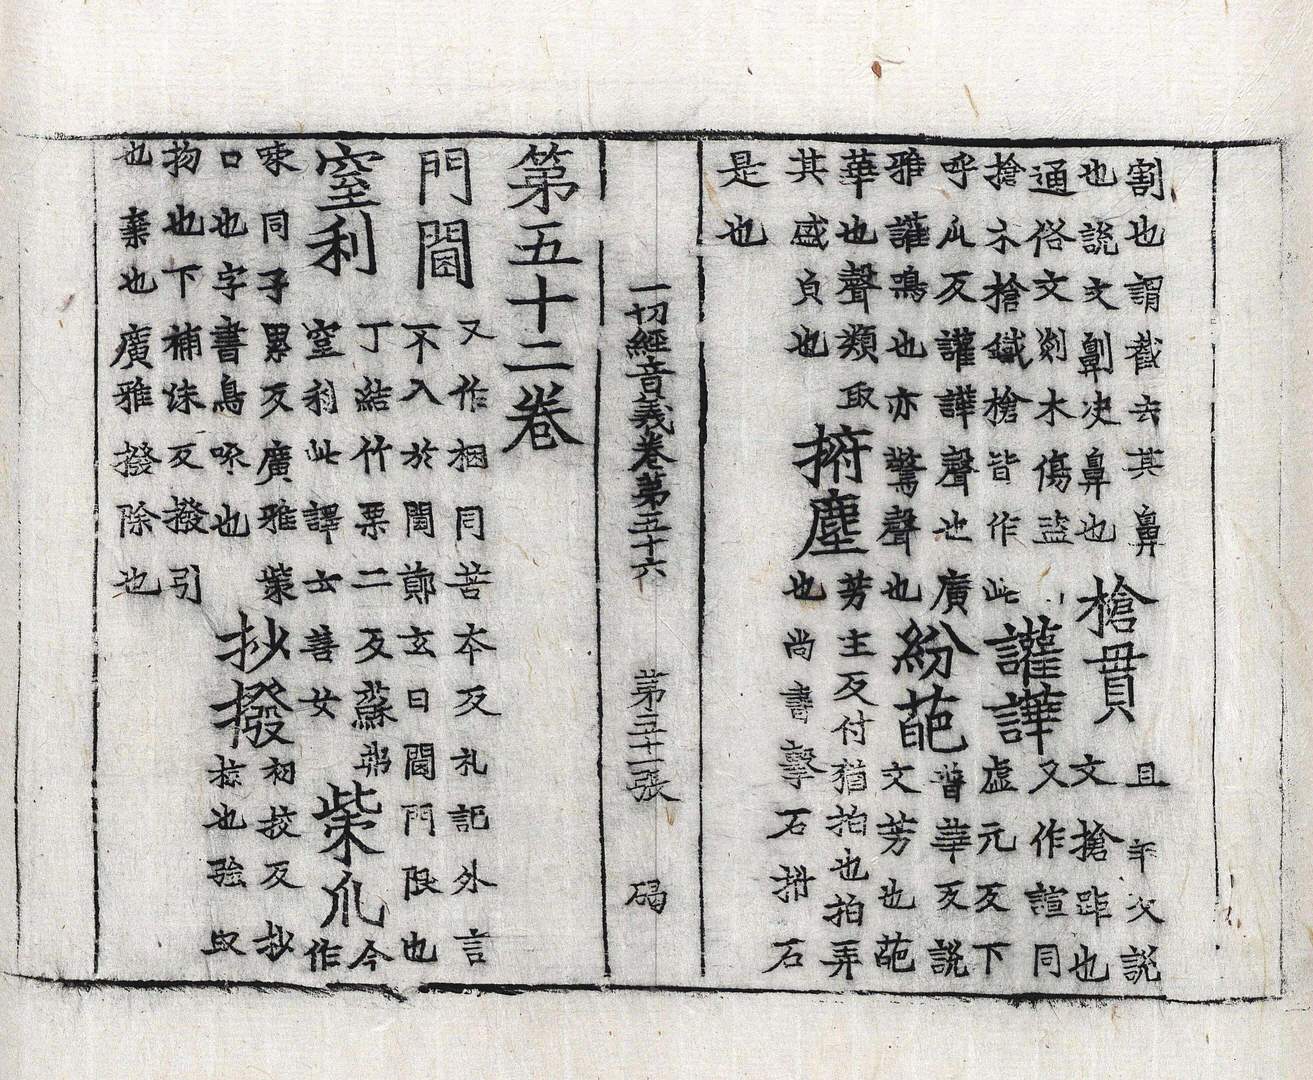 割也謂截去其鼻
也說文劓決鼻也
槍貫
且羊反說
文搶距也
通俗文剡木傷盜
槍木槍鐵槍皆作此
讙譁
又作諠同
虛元反下
呼瓜反讙譁聲也廣
雅讙鳴也亦驚聲也
紛葩
普華反說
文芳也葩
華也聲類取
其盛皃也
拊塵
芳主反付猶拍也拍弄
也尚書擊石拊石
是也
一切經音義卷第五十六 第三十一張 碣
第五十二卷
門閫
又作梱同苦本反礼記外言
不入於閫鄭玄曰閫門限也
窒利
丁結竹栗二反蘇弗
窒利此譯云善女
柴爪
今
作
同子累反廣雅策
口也字書鳥喙也
抄撥
初挍反抄
掠也強取
物也下補沫反撥引
也棄也廣雅撥除也